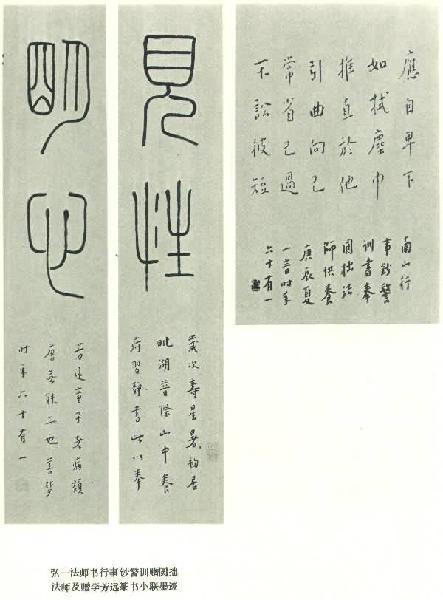 應自卑下
如拭塵巾
推直於他
引曲向己
常省己過
不說彼短
南山行
事鈔警
訓書奉
圓拙法
師供養
庚辰夏
一音时年
六十有一
見性
歲次壽星居
毗湖普濟山中養
疴習靜書此以奉
明心
芳遠童子老病頹
唐能工也善夢
时年六十有一
弘一法师书行事钞警训赠圆拙
法师及赠李芳远篆书小联墨迹